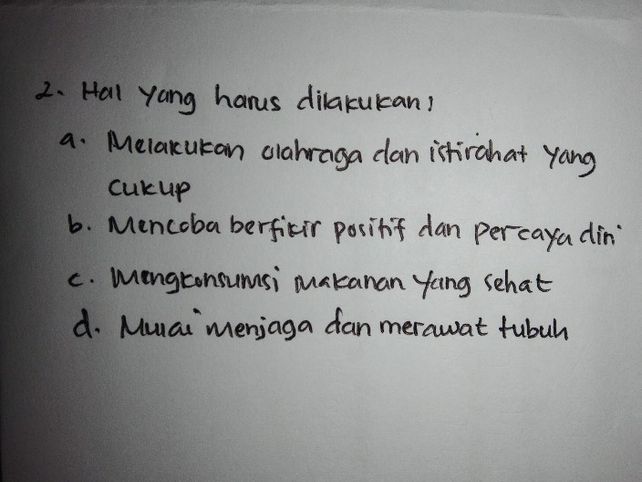 2. Hal yang harus dilakukan;
a. Melakukan olahraga dan istirahat yang
cukup
b. Mencoba berfikir positif dan percaya diri
c. Mengkonsumsi makanan yang sehat
d. Mulai menjaga dan merawat tubuh